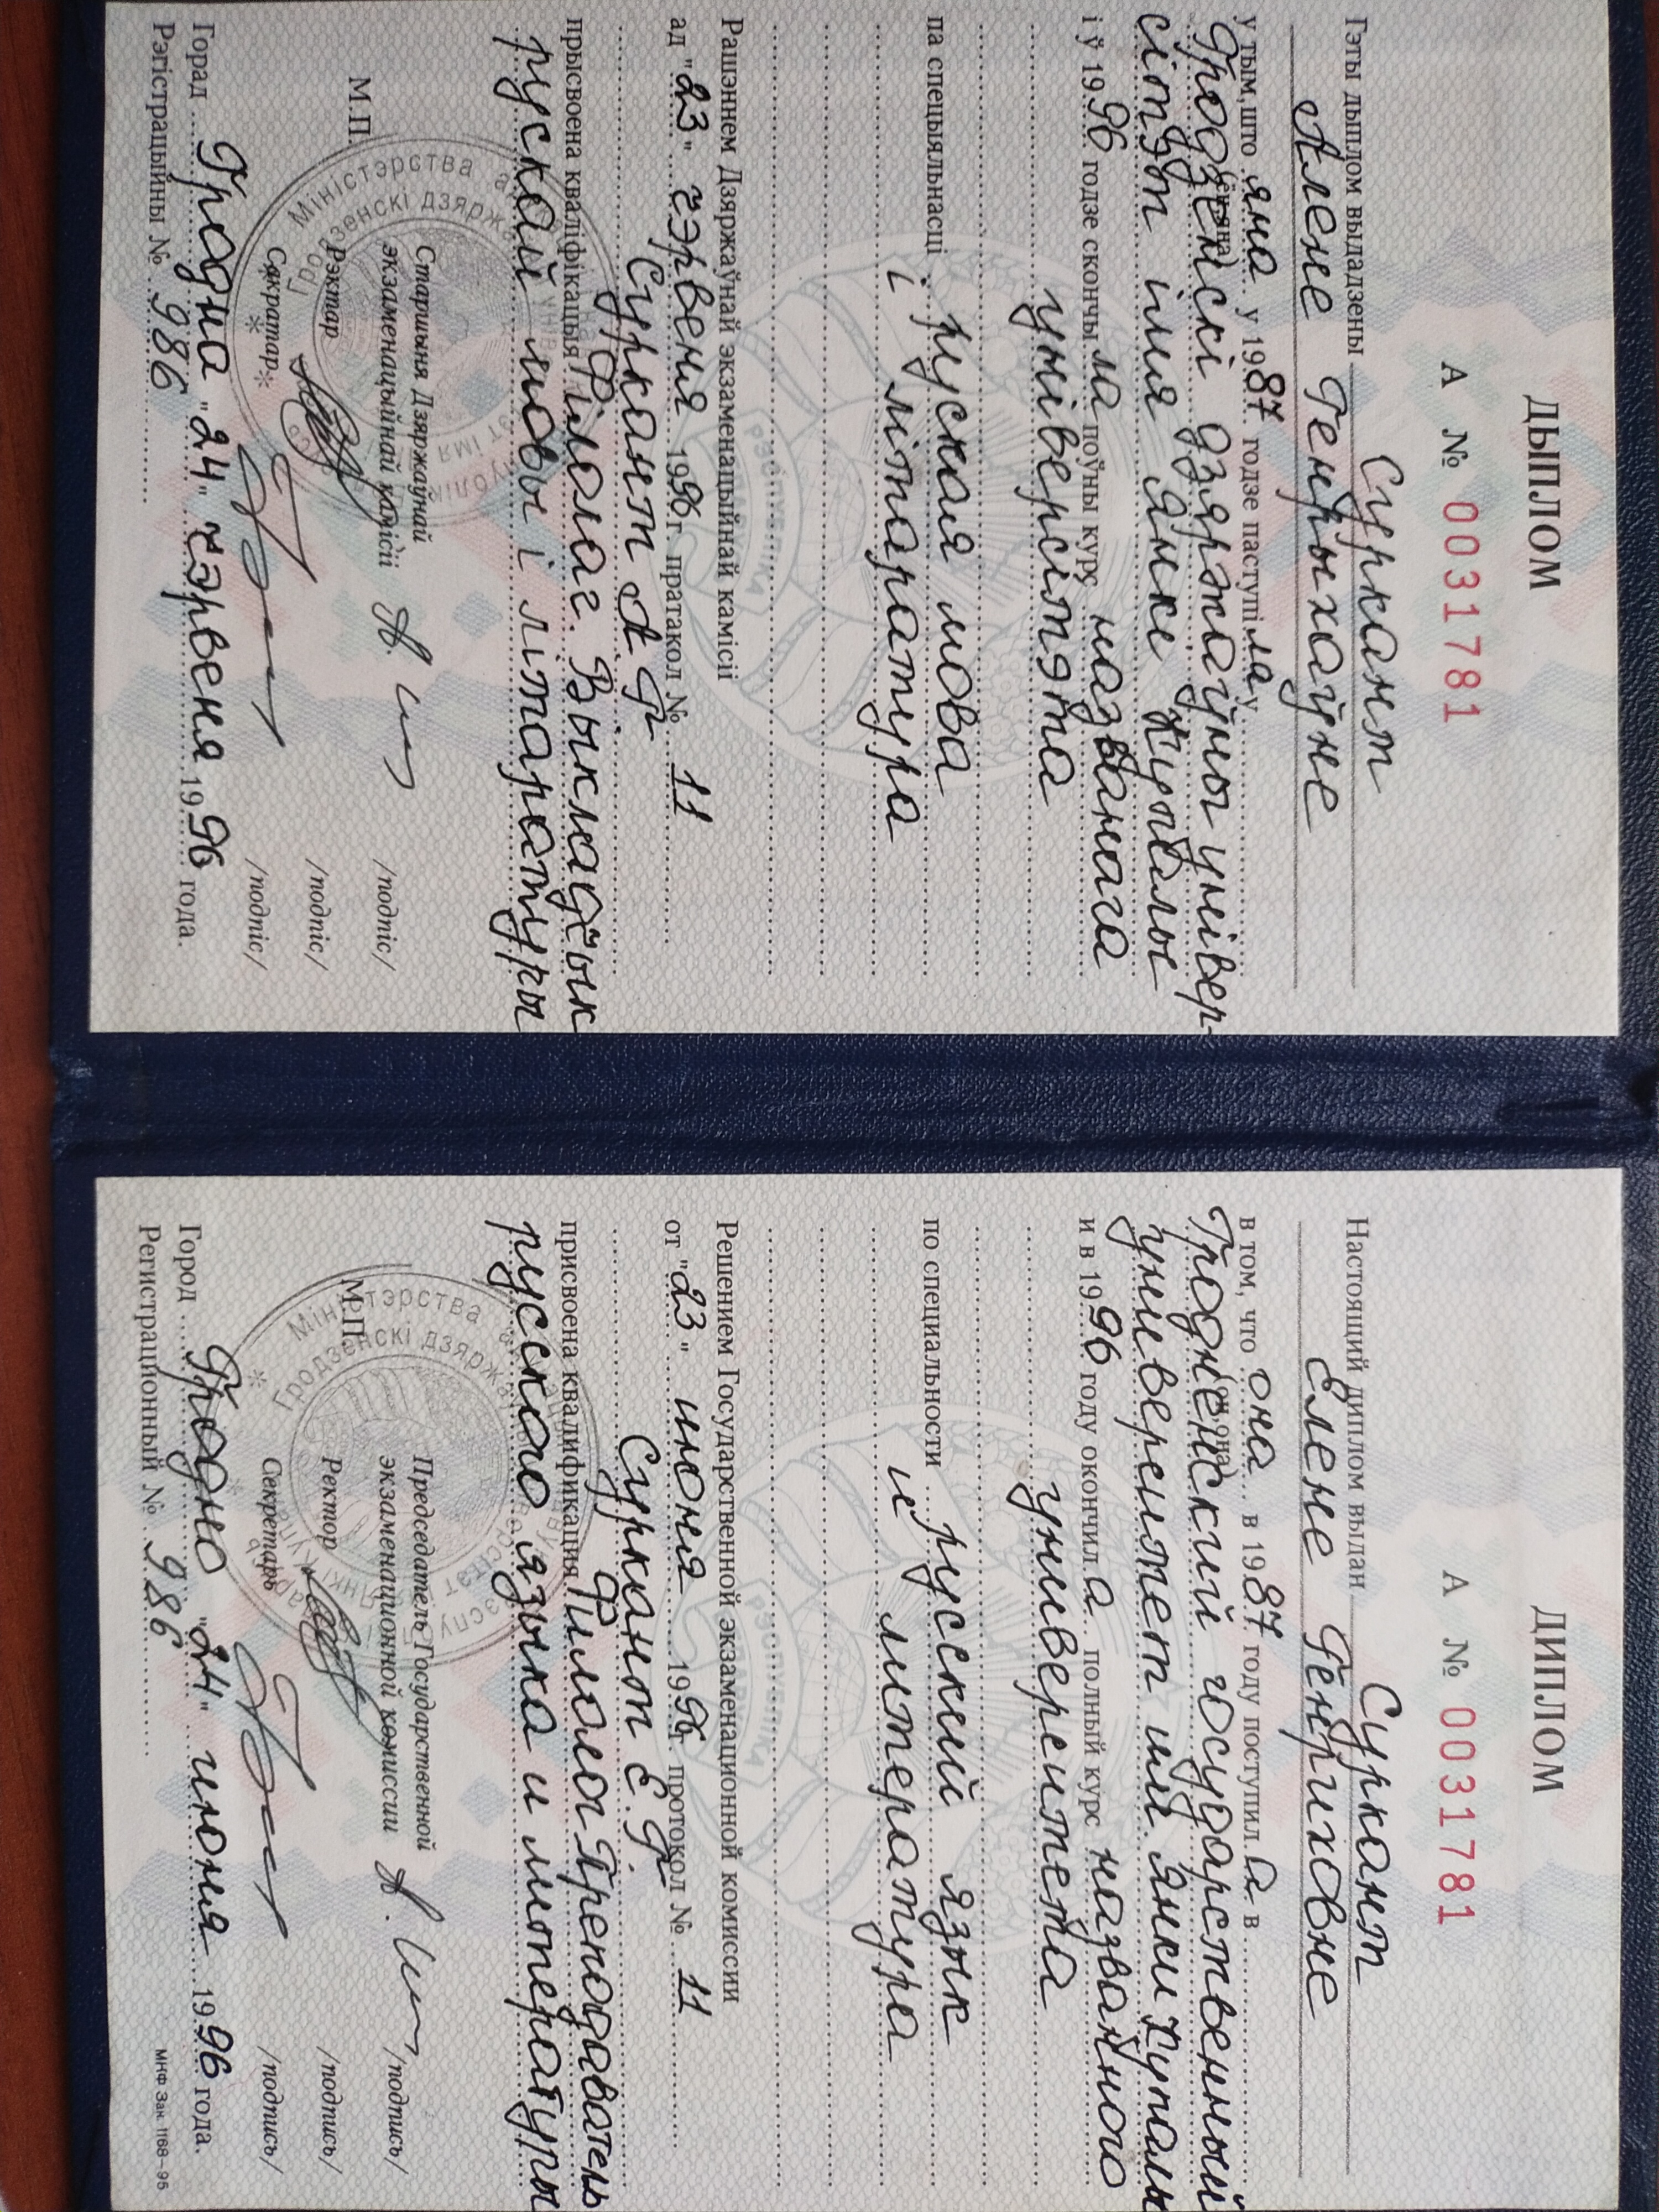 ДЫПЛОМ
А № 0031781
Суркант
Гэты дыплом выдадзены
Алене Генрыхаўне
у тым, што яна у 1987 годзе паступіла у
Гродзенскі дзяржаўны універ-
сітэт імя Янкі Купалы
і ў 1996 годзе скончыла поўны курс названага
універсітэта
па спецыяльнасці руская мова
і літаратура
Рашэннем Дзяржаўнай экзаменацыйнай камісіі
ад "23" чэрвеня 1996 г. пратакол № 11
Суркант А Г.
прысвоена кваліфікацыя Філолаг. Выкладчык
рускай мовы і літаратуры
Старшыня Дзяржаўнай
экзаменацыйнай камісіі /подпіс/
М.П. Рэктар /подпіс/
Сакратар /подпіс/
Горад Гродна "24" чэрвеня 1996 года.
Рэгістрацыйны № 986
Міністэрства
Гродзенскі дзярж
ДИПЛОМ
А № 0031781
Суркант
Настоящий диплом выдан
Елене Генриховне
в том, что она в 1987 году поступила в
Гродненский государственный
университет им Янки Купалы
и в 1996 году окончила полный курс названного
университета
по специальности русский язык
и литература
Решением Государственной экзаменационной комиссии
от "23" июня 1996 г. протокол № 11
Суркант Е. Г.
присвоена квалификация Филолог. Преподаватель
русского языка и литературы
Председатель Государственной
экзаменационной комиссии /подпись/
М.П. Ректор /подпись/
Секретарь /подпись/
Город Гродно "24" июня 1996 года.
Регистрационный № 986
МНФ Зак. 1168–95
Міністэрства
Гродзенскі дзярж